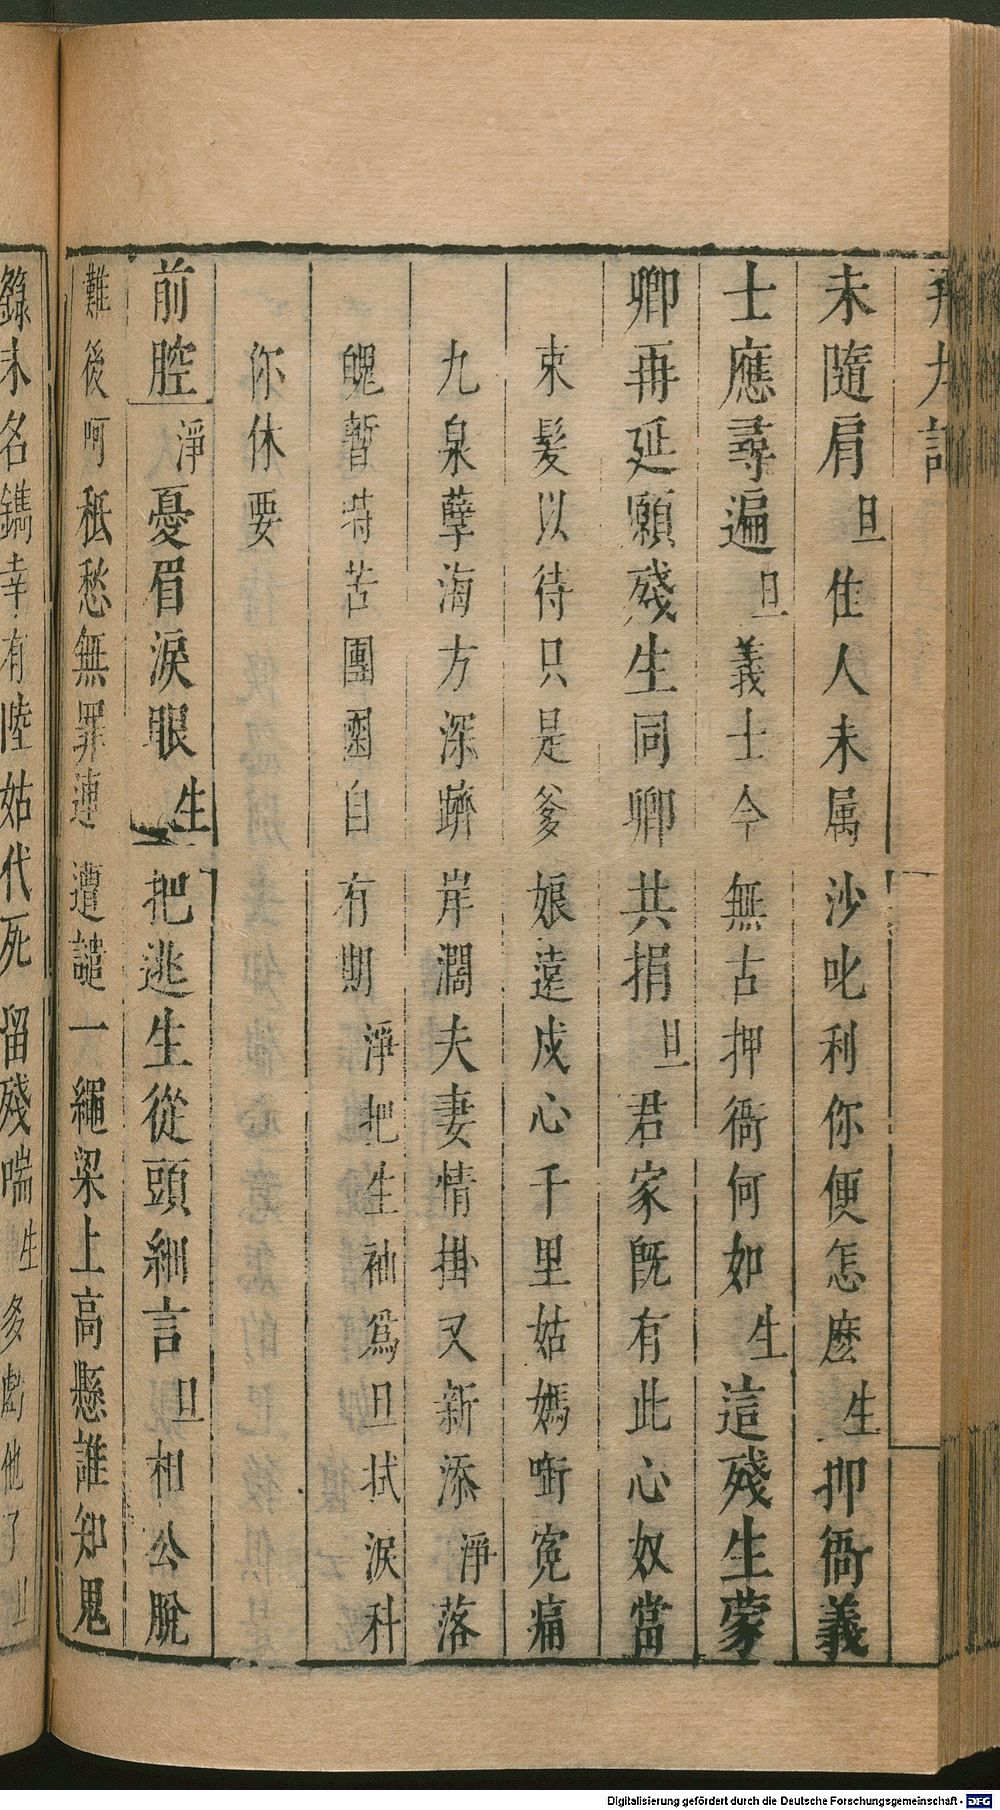 未隨肩旦佳人未属沙叱利你便怎麽生押衙義
士應尋遍旦義士今無古押衙何如生這殘生蒙
卿再延願殘生同卿共捐旦君家既有此心奴當
束髮以待只是爹娘遠戍心千里姑媽啣寃痛
九泉孽海方深躋岸濶夫妻情掛又新添淨落
魄暫時苦團圞自有期淨把生袖爲旦拭淚科
你休要
前腔淨憂眉淚眼生把逃生從頭細言旦相公脫
難後呵秪愁無罪連遭譴一繩梁上高懸誰知鬼
錄未名鐫幸有陸姑代死留殘喘生多虧他了旦
Digitalisierung gefördert durch die Deutsche Forschungsgemeinschaft - DFG